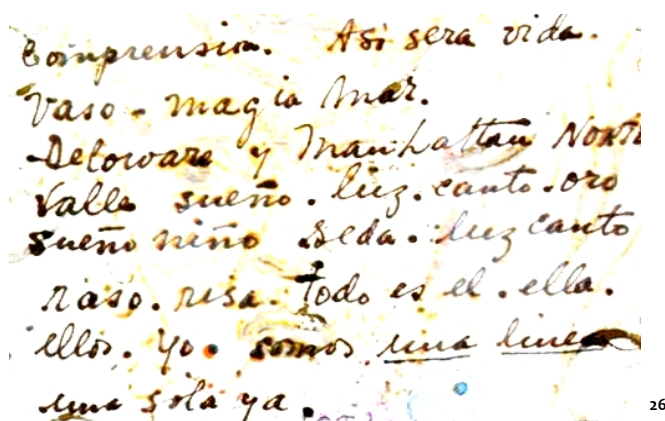 Comprension. Asi sera vida.
Vaso - magia mar.
Deloware y Manhattan North
Valle sueño. luz. canto. oro
sueño niño seda. luz canto
raso. risa. todo es el. ella.
ellos. yo. somos una linea
una sola ya.
26